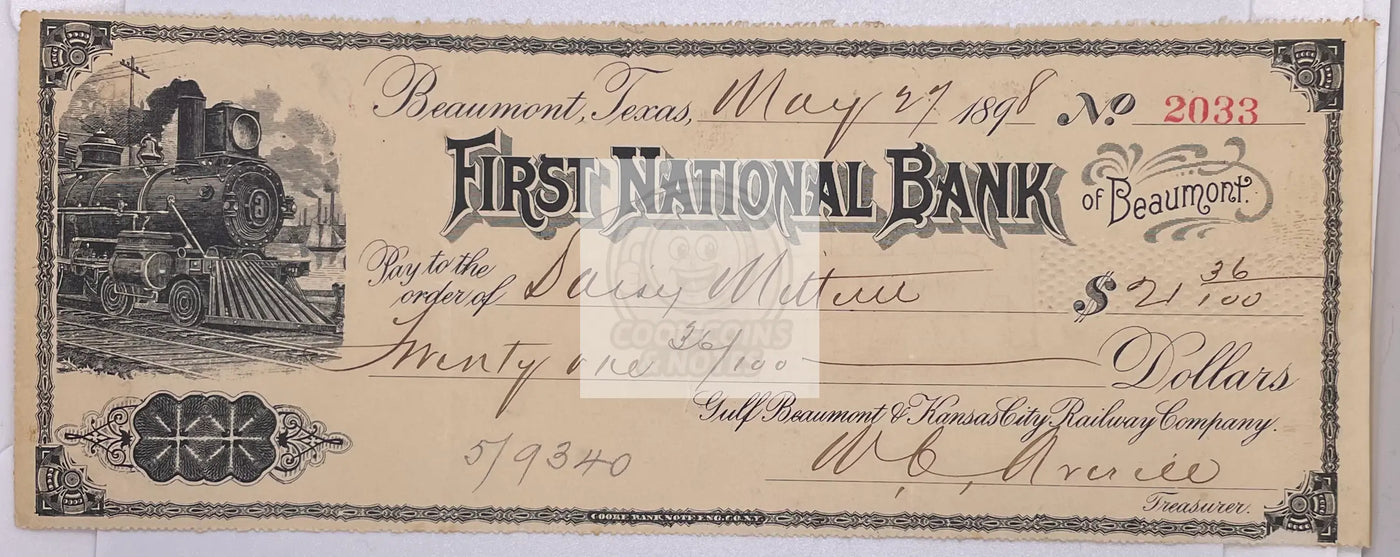 Beaumont, Texas, May 27 1898 No. 2033
FIRST NATIONAL BANK of Beaumont.
Pay to the
order of Daisy $ 21 36/100
COOKE COINS
& NOTES
Twenty one 36/100 Dollars
Gulf Beaumont & Kansas City Railway Company.
5/9340
W. C. Averill
Treasurer.
COOKE BANK NOTE ENG. CO. N.Y.
3